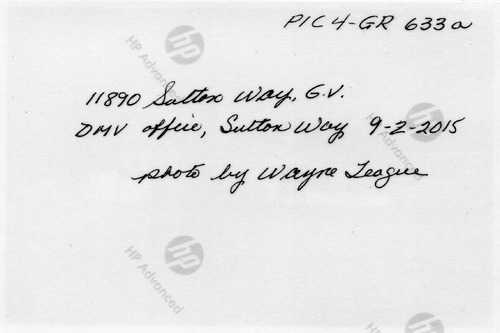 PIC 4-GR 633a
11890 Sutton Way, G.V.
DMV office, Sutton Way 9-2-2015
photo by Wayne League
hp
HP Advanced
hp
HP Advanced
hp
HP Advanced
hp
HP Advanced
hp